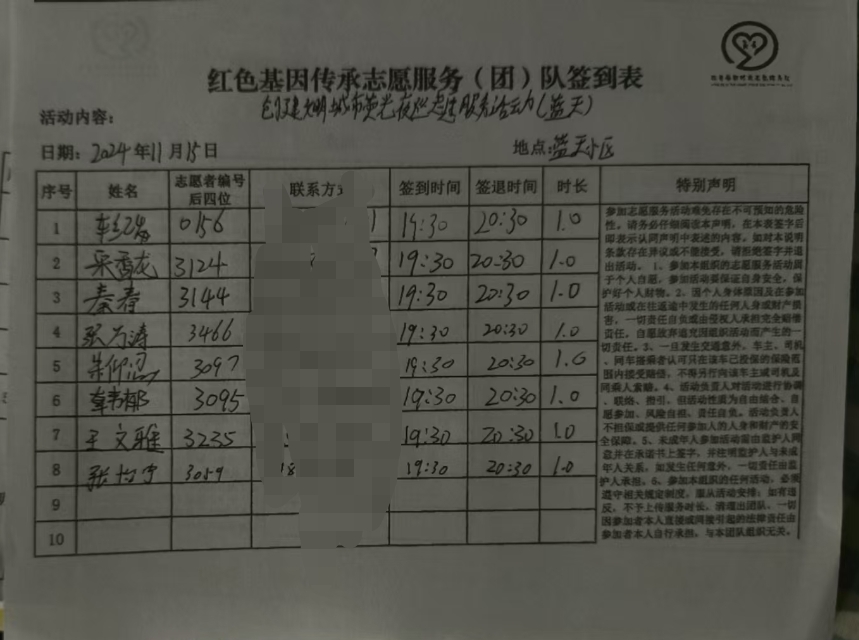 红色基因传承志愿服务（团）队签到表
活动内容： 创建文明城市荧光夜巡志愿服务活动(蓝天)
日期：2024年11月15日 地点：蓝天小区
序号 姓名 志愿者编号后四位 联系方式 签到时间 签退时间 时长 特别声明
1 0156 19:30 20:30 1.0
2 3124 19:30 20:30 1.0
3 秦春 3144 19:30 20:30 1.0
4 张万涛 3466 19:30 20:30 1.0
5 3097 19:30 20:30 1.0
6 3095 19:30 20:30 1.0
7 王文雅 3235 19:30 20:30 1.0
8 3059 18 19:30 20:30 1.0
9
10
参加志愿服务活动难免存在不可预知的危险
性。请务必仔细阅读本声明，在本表签字后
即表示认同声明中表述的内容。如对本说明
条款存在异议或不便接受，请拒绝签字并退
出活动。1、参加本组织的志愿服务活动属
于个人自愿，参加活动要保证自身安全，保
护好个人财物。2、因个人身体原因及在参加
活动或在往返途中发生的任何人身或财产损
害，一切责任自负或由侵权人承担完全赔偿
责任，自愿放弃追究因组织活动而产生的一
切责任。3、一旦发生交通意外，车主、司机
、同车搭乘者认可只在该车已投保的保险范
围内接受赔偿，不得另行向该车主或司机及
同乘人索赔。4、活动负责人对活动进行协调
、联络、指引，但活动性质为自由结合、自
愿参加、风险自担、责任自负。活动负责人
不担保或提供任何参加人的人身和财产的安
全保障。5、未成年人参加活动需由监护人同
意并在承诺书上签字，并注明监护人与未成
年人关系，如发生任何意外，一切责任由监
护人承担。6、参加本组织的任何活动，必须
遵守相关规定制度，服从活动安排；如有违
反，不予上传服务时长，清退出团队，一切
因参加者本人直接或间接引起的法律责任由
参加者本人自行承担，与本团队组织无关。